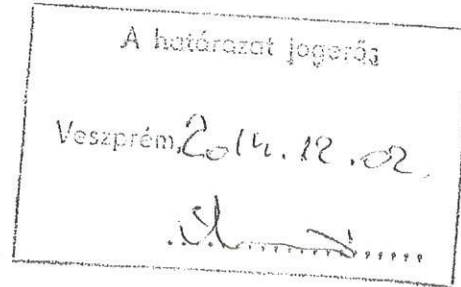 A határozat jogerős
Veszprém, 2014. 12. 02.